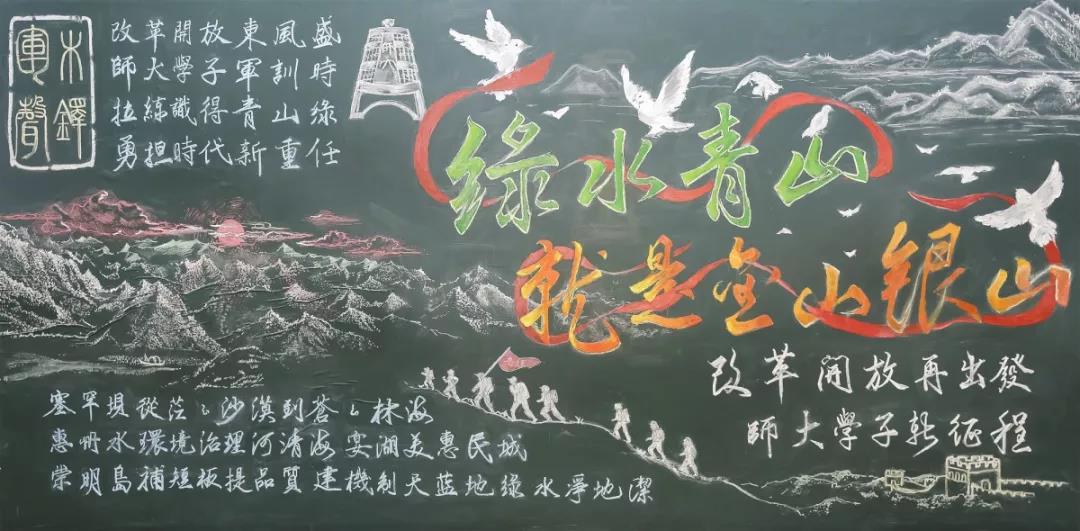 木鐸
軍聲
改革開放東風盛
師大學子軍訓時
拉練識得青山綠
勇担時代新重任
綠水青山
就是金山银山
改革開放再出發
師大學子新征程
塞罕壩從茫〻沙漠到蒼〻林海
惠州水環境治理河清海宴湖美惠民城
崇明島補短板提品質建機制天蓝地綠水淨地潔